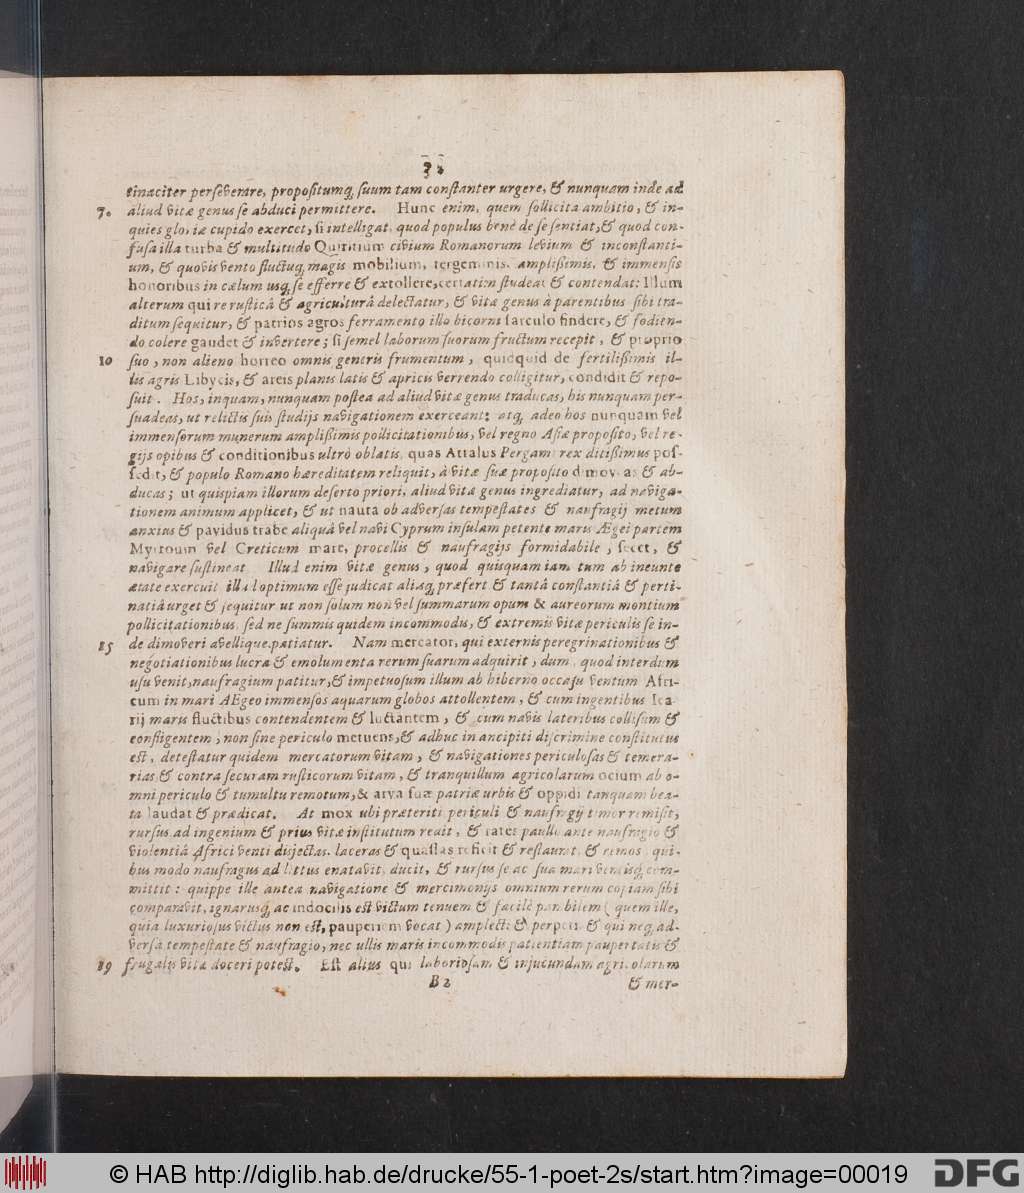 tinaciter perseverare, propositumq́ suum tam constanter urgere, & nunquam inde ad
70 aliud vitæ genus se abduci permittere. Hunc enim, quem sollicita ambitio, & in-
quies gloriæ cupido exercet, si intelligat, quod populus benè de se sentiat, & quod con-
fusa illa turba & multitudo Quiritium civium Romanorum levium & inconstanti-
um, & quovis vento fluctuq́ magis mobilium, tergeminis, amplißimis, & immensis
honoribus in cælum usq́ se efferre & extollere, certatim studeat & contendat: Illum
alterum qui re rusticâ & agriculturâ delectatur, & vitæ genus à parentibus sibi tra-
ditum sequitur, & patrios agros ferramento illo bicorni sarculo findere, & fodien-
do colere gaudet & invertere; si semel laborum suorum fructum recepit, & proprio
10 suo, non alieno horreo omnis generis frumentum, quicquid de fertilißimis il-
lis agris Libycis, & areis planis latis & apricis verrendo colligitur, condidit & repo-
suit. Hos, inquam, nunquam postea ad aliud vitæ genus traducas, his nunquam per-
suadeas, ut relictis suis studijs navigationem exerceant: atq́ adeo hos nunquam vel
immensorum munerum amplißimis pollicitationibus, vel regno Asiæ proposito, vel re-
gijs opibus & conditionibus ultrò oblatis, quas Attalus Pergami rex ditißimus pos-
sedit, & populo Romano hæreditatem reliquit, à vitæ suæ proposito dimoveas & ab-
ducas; ut quispiam illorum deserto priori, aliud vitæ genus ingrediatur, ad naviga-
tionem animum applicet, & ut nauta ob adversas tempestates & naufragij metum
anxius & pavidus trabe aliquâ vel navi Cyprum insulam petente maris Ægei partem
Myrtoum vel Creticum mare, procellis & naufragijs formidabile, secet, &
navigare sustineat. Illud enim vitæ genus, quod quisquam iam tum ab ineunte
ætate exercuit illud optimum esse judicat aliasq́ præfert & tantâ constantiâ & perti-
natiâ urget & sequitur ut non solum non vel summarum opum & aureorum montium
pollicitationibus, sed ne summis quidem incommodis, & extremis vitæ periculis se in-
85 de dimoveri avellique patiatur. Nam mercator, qui externis peregrinationibus &
negotiationibus lucra & emolumenta rerum suarum adquirit, dum, quod interdum
usu venit, naufragium patitur, & impetuosum illum ab hiberno occasu ventum Afri-
cum in mari AEgeo immensos aquarum globos attollentem, & cum ingentibus Ica-
rij maris fluctibus contendentem & luctantem, & cum navis lateribus collisum &
confligentem, non sine periculo metuens, & adhuc in ancipiti discrimine constitutus
est, detestatur quidem mercatorum vitam, & navigationes periculosas & temera-
rias, & contra securam rusticorum vitam, & tranquillum agricolarum ocium ab o-
mni periculo & tumultu remotum, & arva suæ patriæ urbis & oppidi tanquam bea-
ta laudat & prædicat. At mox ubi præteriti periculi & naufragij timor remisit,
rursus ad ingenium & prius vitæ institutum redit, & rates paullo ante naufragio &
violentiâ Africi venti disjectas, laceras & quassas reficit & restaurat, & remos, qui-
bus modo naufragus ad littus enatavit, ducit, & rursus se ac sua mari ventisq́ com-
mittit: quippe ille antea navigatione & mercimonijs omnium rerum copiam sibi
comparavit, ignarusq́ ac indocilis est victum tenuem & facilè parabilem (quem ille,
quia luxuriosus victus non est, pauperiem vocat) amplecti & perpeti & qui neq́ ad-
versâ tempestate & naufragio, nec ullis maris incommodis patientiam paupertatis &
89 frugalis vitæ doceri potest. Est alius qui laboriosam & injucundam agricolarum
B 2 & mer-
© HAB http://diglib.hab.de/drucke/55-1-poet-2s/start.htm?image=00019 DFG